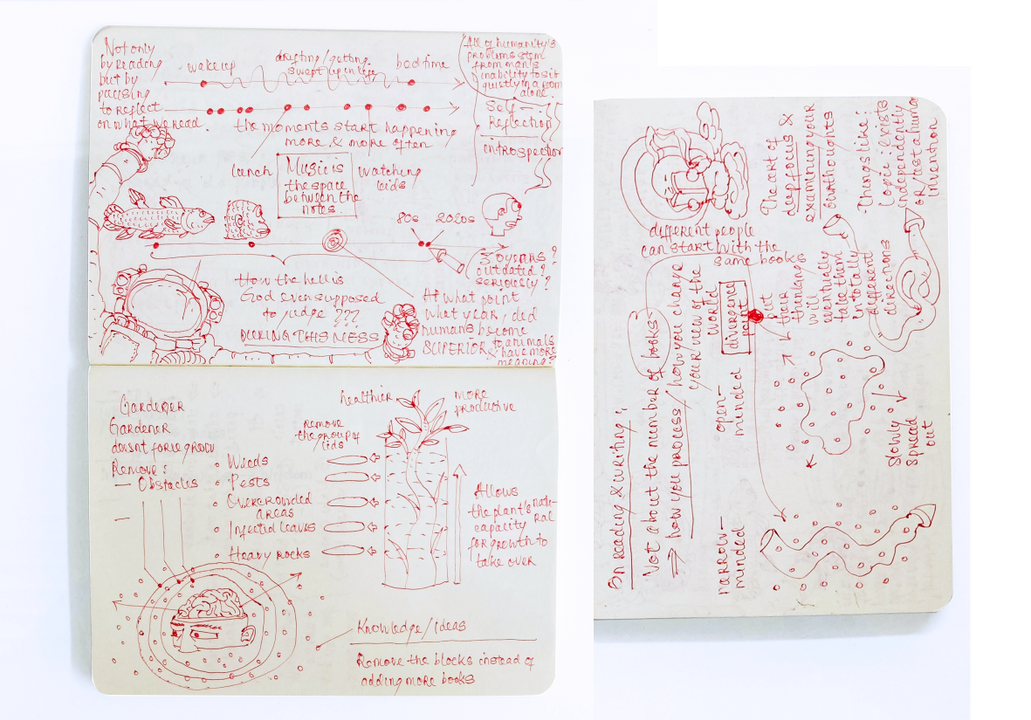 Not only
by reading
but by
pausing
to reflect
on what we read.
wake up
drifting/getting
swept up in life
bedtime
All of humanity's
problems stem
from man's
inability to sit
quietly in a room
alone.
Self-
Reflection
introspection
the moments start happening
more & more often
lunch
Music is
the space
between the
notes.
watching
kids
80s
2020s
30 years?
outdated?
seriously?
How the hell is
God even supposed
to judge???
DURING THIS MESS
At what point
what year, did
humans become
SUPERIOR to animals
& have more
meaning?
Gardener
Gardener
doesn't force grow
Remove:
— Obstacles
• Weeds
• Pests
• Overcrowded
areas
• Infected leaves
• Heavy rocks
remove
the group of
lids
healthier
more
productive
Allows
the plant's natural
capacity
for growth to
take over
Knowledge/Ideas
Remove the blocks instead of
adding more books
On reading & writing:
Not about the number of books
⇒ how you process / how you change
your view of the
world
narrow-
minded
open-
minded
divergence
point
different people
can start with the
same books
but
their
thinking
will
eventually
take them
in totally
different
directions
The art of
deep focus &
examining your
own thoughts
Things like:
Logic: exists
independently
or just a human
invention
slowly
spread
out